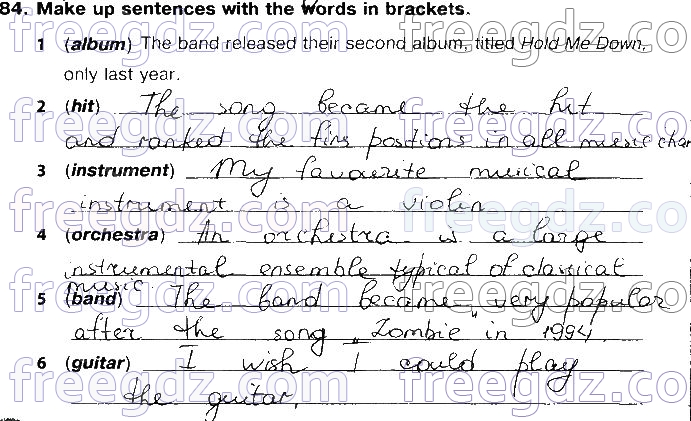 84. Make up sentences with the words in brackets.
1 (album) The band released their second album, titled Hold Me Down,
only last year.
2 (hit) The song became the hit
and ranked the firs postions in all music char
3 (instrument) My favourite musical
instrument is a violin
4 (orchestra) An orchestra is a large
instrumental ensemble typical of classical
music
5 (band) The band became very popular
after the song „Zombie" in 1994.
6 (guitar) I wish I could play
the guitar.
freegdz.co freegdz.co
freegdz.co freegdz.co
freegdz.co freegdz.co
freegdz.co freegdz.co
freegdz.co freegdz.co